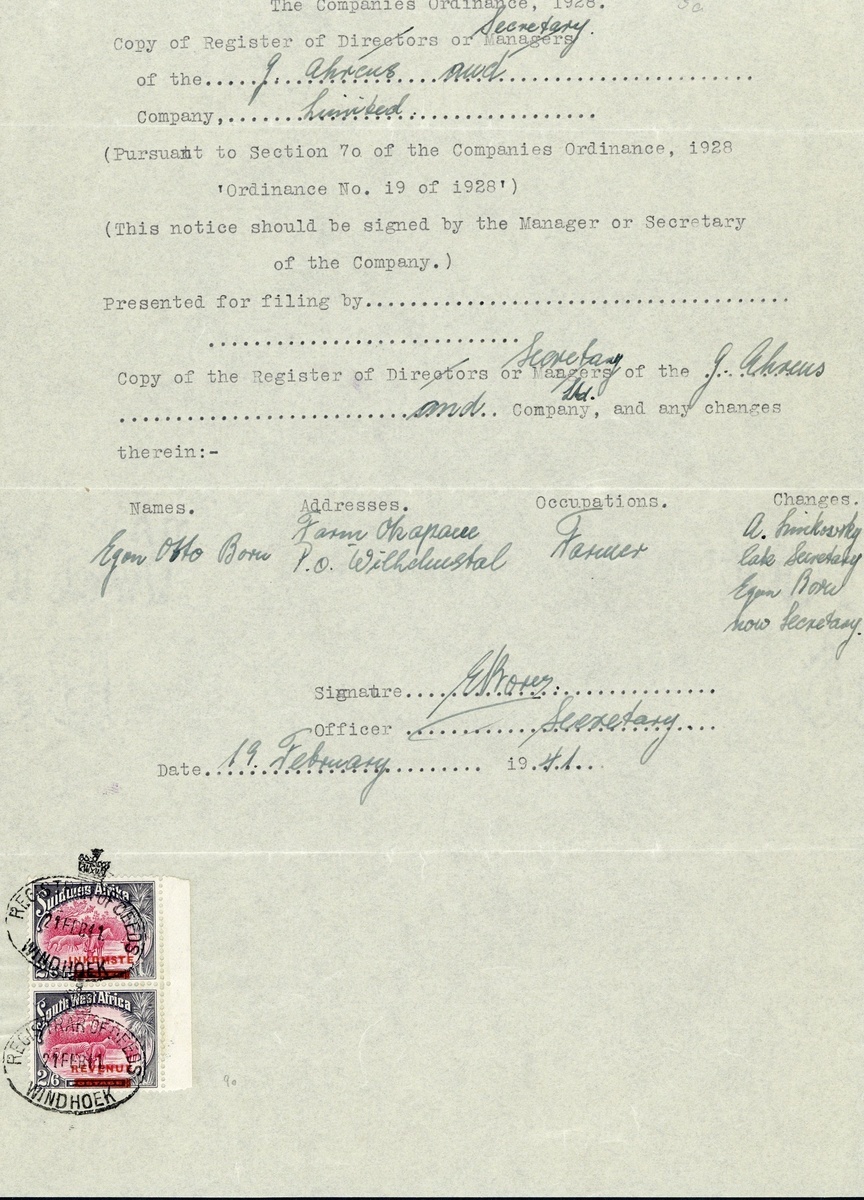 The Companies Ordinance, 1928.
Secretary.
Copy of Register of Directors or Managers
of the.....G. Ahrens and.....
Company,.....Limited.....
(Pursuant to Section 7o of the Companies Ordinance, i928
'Ordinance No. i9 of i928')
(This notice should be signed by the Manager or Secretary
of the Company.)
Presented for filing by.....
.....
Secretary
Copy of the Register of Directors or Mangers of the G. Ahrens
Ltd.
.....and.. Company, and any changes
therein:-
Names. Addresses. Occupations. Changes.
Egon Otto Born Farm Okapaue Farmer A. Simkowsky
P.O. Wilhelmstal late Secretary
Egon Born
now Secretary.
Signature....EBorn.....
Officer .....Secretary....
Date.19. February..... i9.41...
Suidwes Afrika
REGISTRAR OF DEEDS
21 FEB 41
INKOMSTE
WINDHOEK
South West Africa
REGISTRAR OF DEEDS
21 FEB 41
REVENUE
2/6 POSTAGE
WINDHOEK